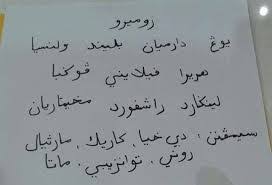 روميرو
يوڠ دارميان بليند ولنسيا
هريرا فيلايني ڤوکبا
لينکارد راشفورد مخيتاريان
سيمڤنن : دي خيا، کاريک، مارثيال
روني، توانزيبي، ماتا